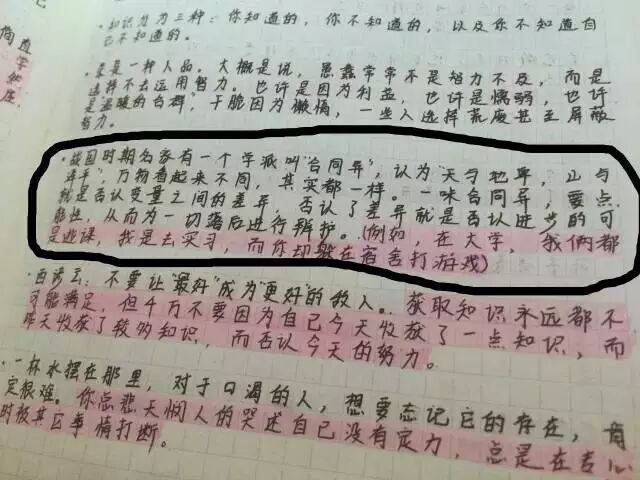 ·知识分为三种：你知道的，你不知道的，以及你不知道自
己不知道的。
·蠢是一种人品。大概是说，愚蠢常常不是智力不及，而是
选择不去运用智力。也许是因为利益，也许是懦弱，也许
是温暖的合群，干脆因为懒惰，一些人选择荒废甚至屏蔽
智力。
·战国时期名家有一个学派叫"合同异"，认为"天与地卑，山与
泽平"，万物看起来不同，其实都一样。一味合同异，要点
就是否认变量之间的差异，否认了差异就是否认进步的可
能性，从而为一切落后进行辩护。(例如，在大学，我俩都
是逃课，我是去实习，而你却躲在宿舍打游戏)
·西谚云：不要让"最好"成为"更好"的敌人。获取知识永远都不
可能满足，但千万不要因为自己今天收获了一点知识，而
昨天收获了较多知识，而否认今天的努力。
·一杯水摆在那里，对于口渴的人，想要忘记它的存在，肯
定很难。你总悲天悯人的哭述自己没有定力，总是在专心
时被其它事情打断。